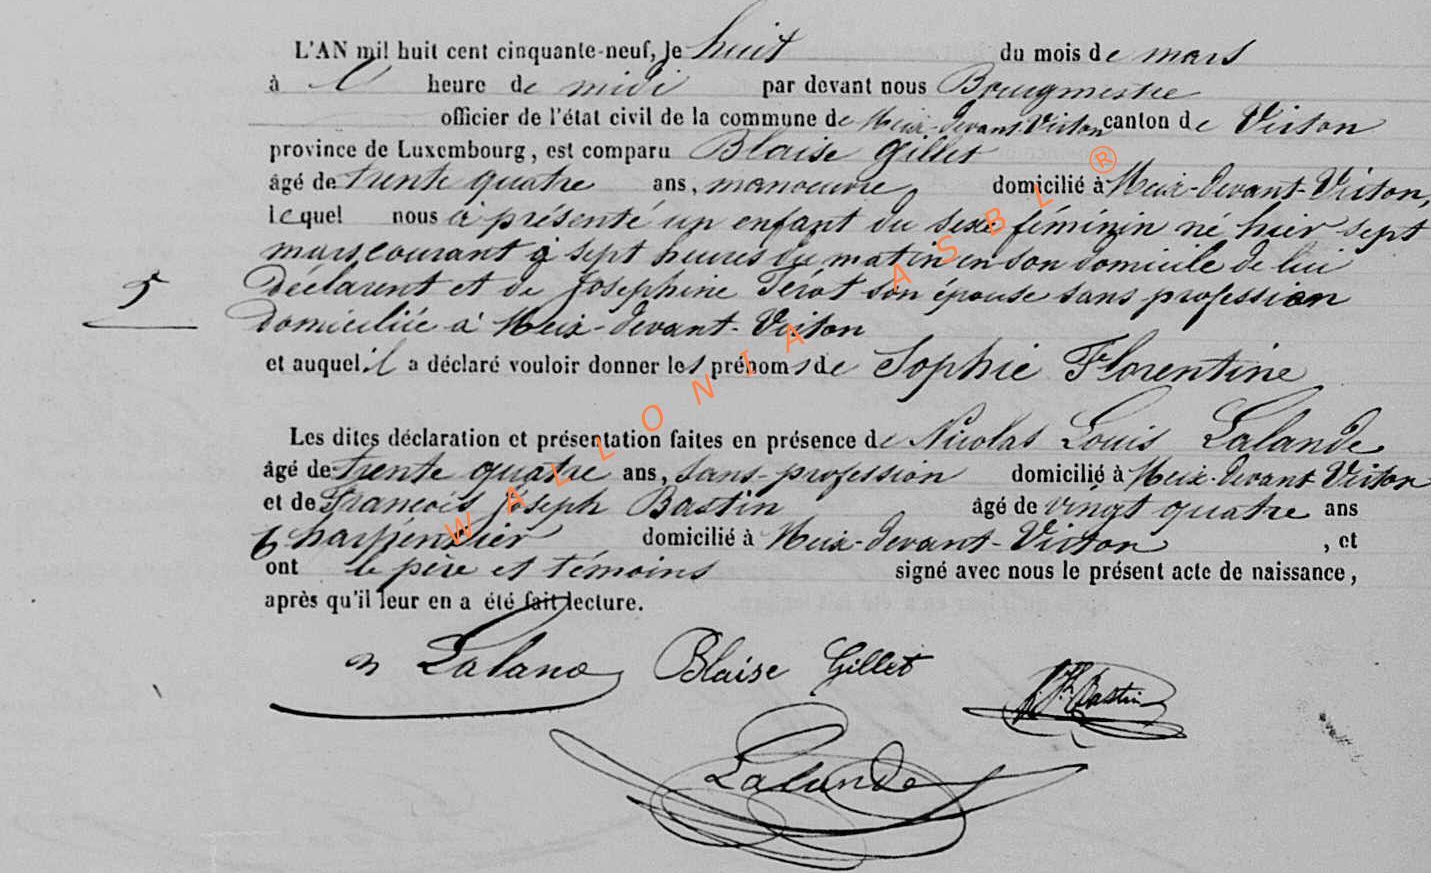 L'AN mil huit cent cinquante-neuf, le huit du mois de mars
à l' heure de midi par devant nous Bourgmestre
officier de l'état civil de la commune de Meix-devant-Virton canton de Virton
province de Luxembourg, est comparu Blaise Gillet
âgé de trente quatre ans, manoeuvre, domicilié à Meix-devant-Virton,
lequel nous a présenté un enfant du sexe féminin né hier sept
mars courant à sept heures du matin en son domicile de lui
5 déclarent et de Joséphine Térot son épouse sans profession
domiciliée à Meix-devant-Virton
et auquel il a déclaré vouloir donner les prénoms de Sophie Florentine
Les dites déclaration et présentation faites en présence de Nicolas Louis Lalande
âgé de trente quatre ans, sans profession domicilié à Meix-devant Virton
et de François Joseph Bastin âgé de vingt quatre ans
Charpentier domicilié à Meix-devant-Virton , et
ont le père et témoins signé avec nous le présent acte de naissance,
après qu'il leur en a été fait lecture.
Blaise Gillet Bastin
Lalande
WALLONIA ASBL ®